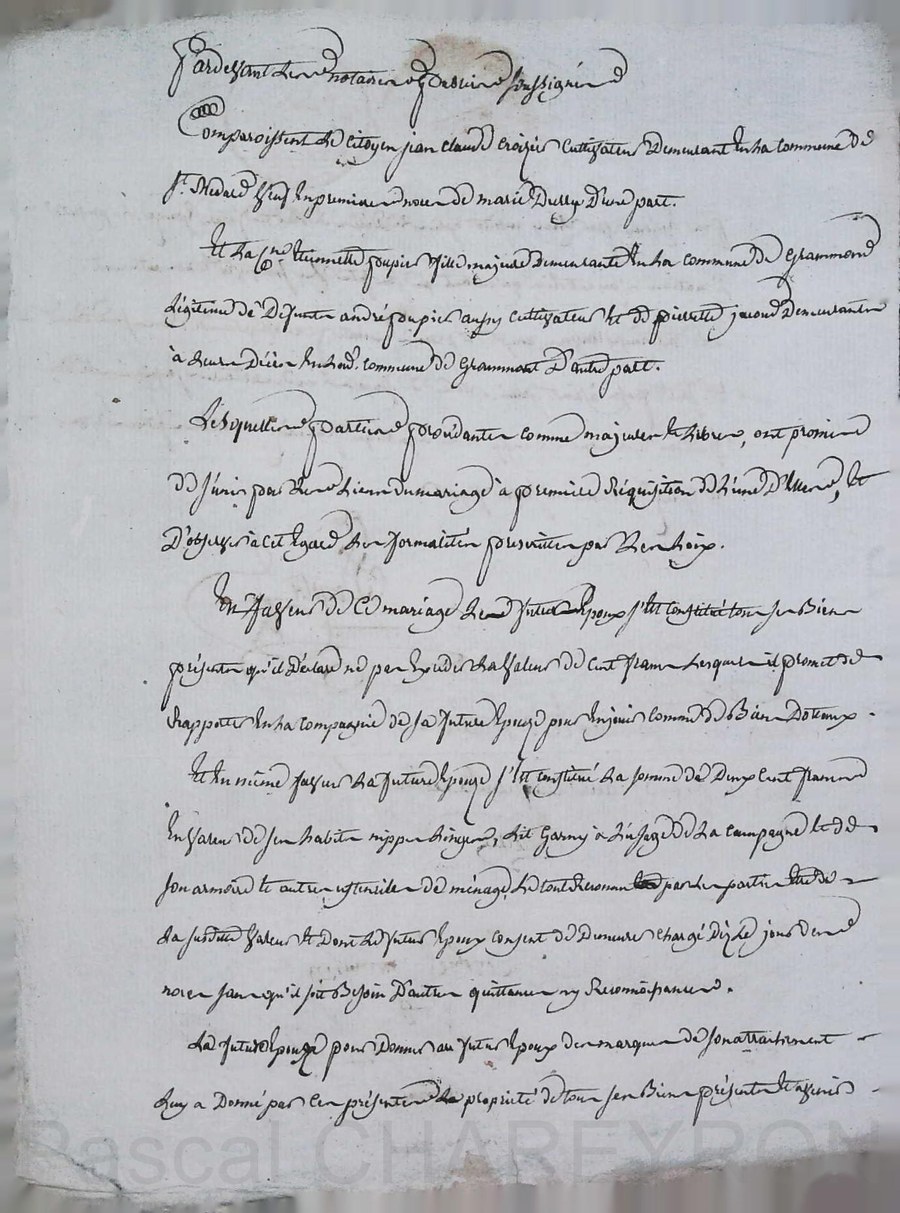 Pardevant les notaires publics soussignés
Comparoissent le Citoyen jean claude croizier Cultivateur Demeurant En la commune de
St. Medard Veuf En premieres noces de marie Durey D'une part.
Et la Cne. Etiennette foupier fille majeure Demeurante En la commune de Grammond
Légitime de Défunts andré foupier aussy cultivateur Et de pierrette jacoud Demeurants
à leurs Décès En lad. commune de Grammont D'autre part.
Lesquelles parties procédantes comme majeures et Libres, ont promis
de s'unir par les Liens du mariage à première Réquisition de L'une D'Elles, Et
D'observer à cet Egard les formalités prescrittes par les Loix.
En faveur de Ce mariage Led futur Epoux s'Est constitué tous ses Biens
présents qu'il Déclare ne pas Exeder la valeur de cent francs Lesquels il promet de
Rapporter En la compagnie de sa future Epouze pour En jouir comme de Biens Dotaux.
Et En même faveur La future Epouze s'Est constitué La somme de Deux Cent francs
En valeur de ses habits nippes Linges, Lit Garny à L'usage de La campagne Et de
son armoire Et autres ustensiles de ménage Le tout Reconnu par les parties Etre de
La susditte valeur Et Dont Le futur Epoux consent de Demeurer Chargé Dez Le jour des
noces sans qu'il soit Besoin D'autres quittances ny Reconnoissances.
La future Epouze pour Donner au futur Epoux des marques de son attachement
Luy a Donné par Ces présentes La propriété de tous ses Biens présents Et avenir
Pascal CHAREYRON